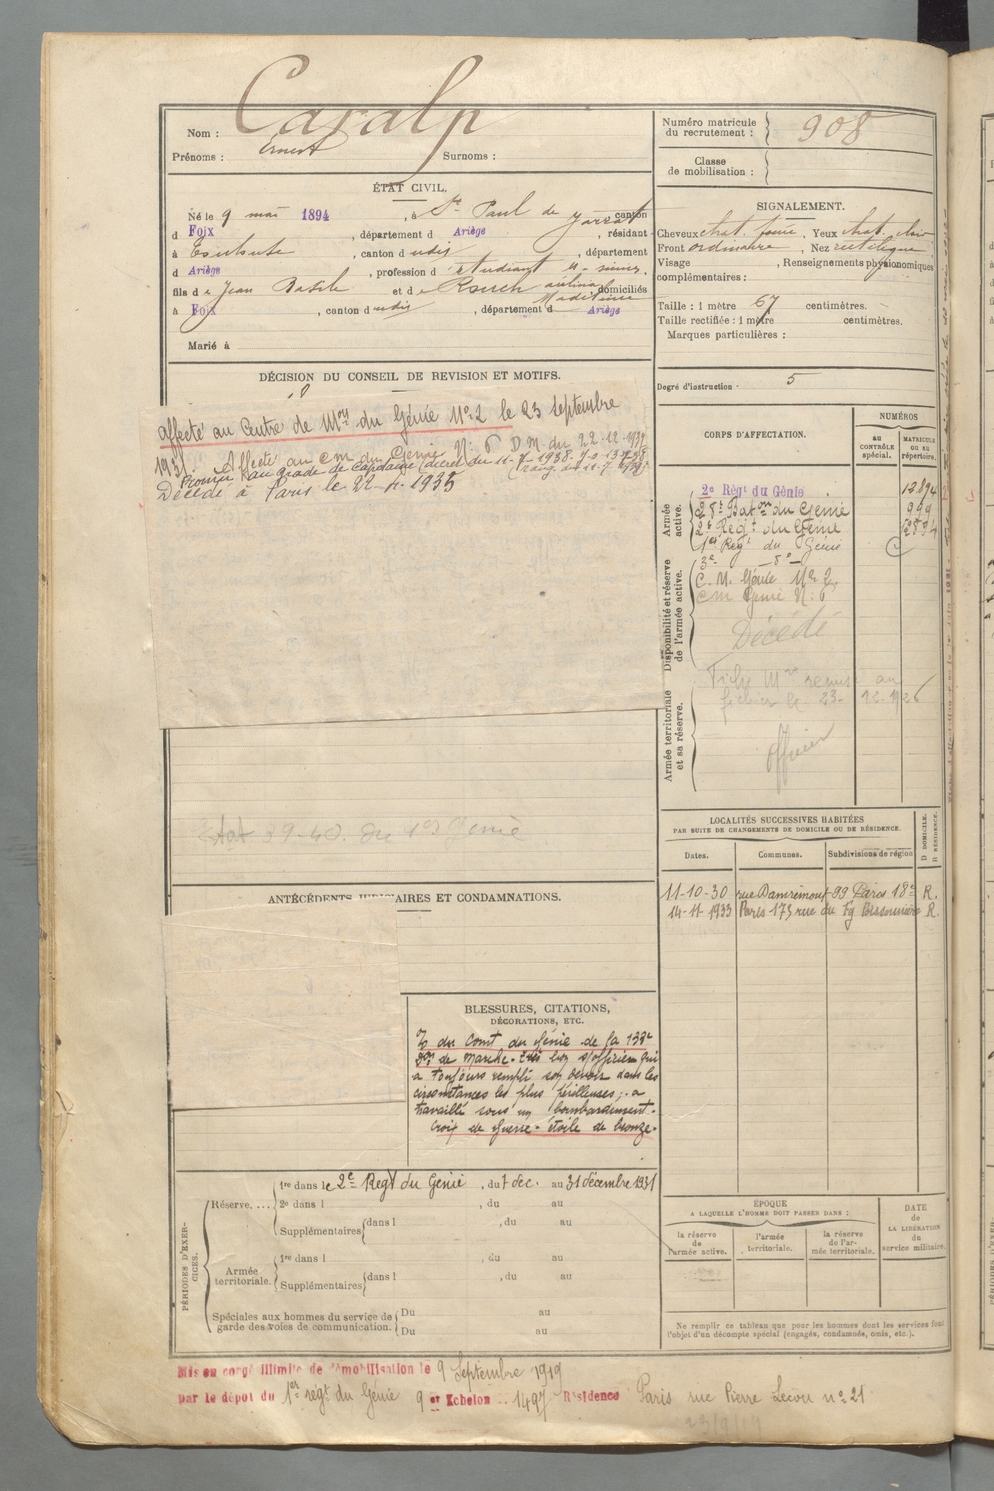 Nom : Caralp
Prénoms : Ernest Surnoms :
Numéro matricule du recrutement : 908
Classe de mobilisation :
ÉTAT CIVIL.
Né le 9 mai 1894, à St Paul de Jarrat canton
d Foix, département d Ariège, résidant
à , canton d udit, département
d Ariège, profession d étudiant
fils de Jean Batiste et de Rouch domiciliés
à Foix, canton dudit, département d Ariège
Marié à
SIGNALEMENT.
Cheveux chat. foncé, Yeux chat. clair
Front ordinaire, Nez rectiligne
Visage , Renseignements physionomiques
complémentaires :
Taille : 1 mètre 67 centimètres.
Taille rectifiée : 1 mètre centimètres.
Marques particulières :
Degré d'instruction · 5
DÉCISION DU CONSEIL DE REVISION ET MOTIFS.
affecté au Centre de Mon du Génie No 2 le 23 septembre
1931. Affecté au cm du Génie N: 6 D.M. du 22.12.193
Promu au grade de Capitaine (décret du 11-7-1938. J.O. 13-7-38
(rang du 11-7
Décédé à Paris le 22-4-1935
Etat 39-40. du 1er Génie
CORPS D'AFFECTATION.
NUMÉROS
AU CONTRÔLE SPÉCIAL.
MATRICULE OU AU RÉPERTOIRE.
Armée active.
2e Régt du Génie 12894
28e Baton du Génie 999
2e Regt du Génie
1er Regt du Génie
Disponibilité et réserve de l'armée active.
3e _ do _
C. M. Génie No 2
cm Génie N: 6
Décédé
Armée territoriale et sa réserve.
Fiche Mre remise au
fichier le 23-12-1926
officier
LOCALITÉS SUCCESSIVES HABITÉES
PAR SUITE DE CHANGEMENTS DE DOMICILE OU DE RÉSIDENCE.
Dates. Communes. Subdivisions de région D DOMICILE. R RÉSIDENCE.
11-10-30 rue Damrémont 99 Paris 18e R.
14-11-1933 Paris 173 rue du Fg Poissonnière R.
ANTÉCÉDENTS JUDICIAIRES ET CONDAMNATIONS.
BLESSURES, CITATIONS,
DÉCORATIONS, ETC.
du Comt du Génie de la 133e
Don de marche. très bon s/officier qui
a toujours rempli son devoir dans les
circonstances les plus périlleuses; a
travaillé sous un bombardement.
Croix de guerre. étoile de bronze.
PÉRIODES D'EXERCICES.
Réserve....
1re dans le 2e Regt du Génie, du 7 dec. au 31 décembre 1931
2e dans l , du au
Supplémentaires dans l , du au
Armée territoriale.
1re dans l , du au
Supplémentaires dans l , du au
Spéciales aux hommes du service de garde des voies de communication.
Du au
Du au
ÉPOQUE
A LAQUELLE L'HOMME DOIT PASSER DANS :
la réserve de l'armée active.
l'armée territoriale.
la réserve de l'armée territoriale.
DATE DE LA LIBÉRATION du service militaire.
Ne remplir ce tableau que pour les hommes dont les services font
l'objet d'un décompte spécial (engagés, condamnés, omis, etc.).
Mis en congé illimité de démobilisation le 9 Septembre 1919
par le dépôt du 1er régt du Génie 9 er Echelon .. 1497 Résidence Paris rue Pierre Lecou no 21